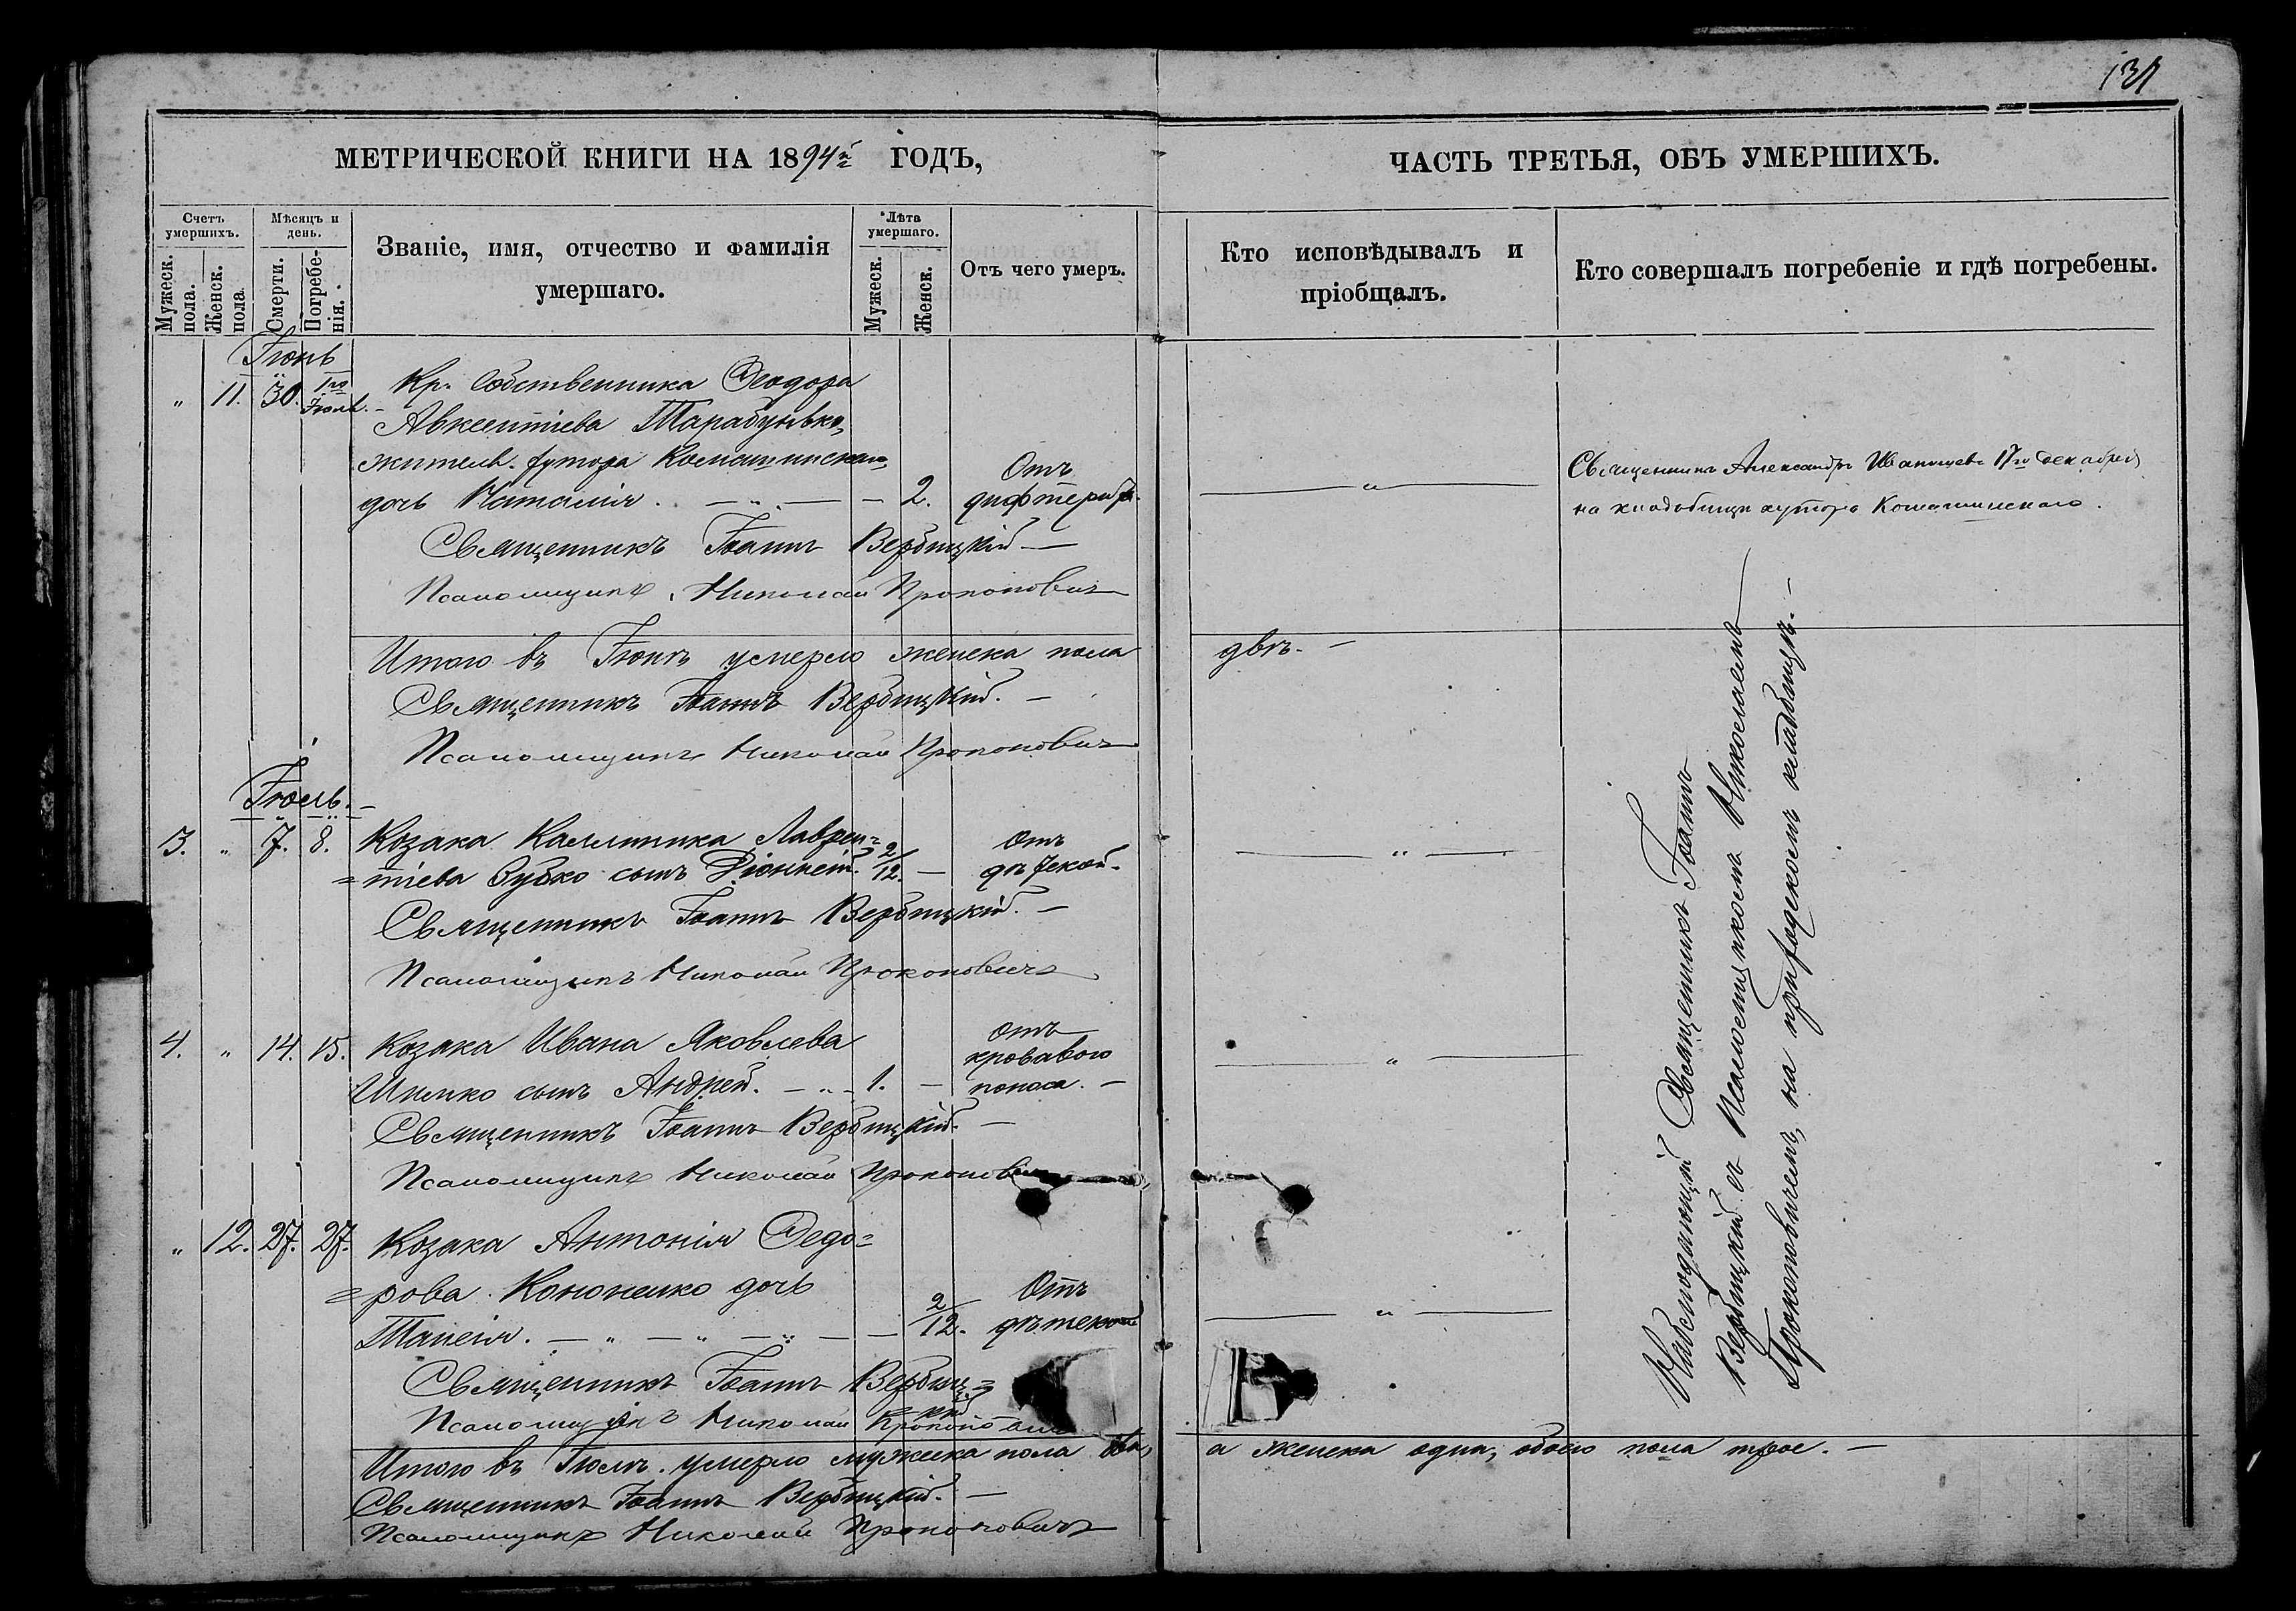 131
МЕТРИЧЕСКОЙ КНИГИ НА 1894й ГОДЪ,
ЧАСТЬ ТРЕТЬЯ, ОБЪ УМЕРШИХЪ.
Счетъ умершихъ.
Мужеск. пола.
Женск. пола.
Мѣсяцъ и день.
Смерти.
Погребенія.
Званіе, имя, отчество и фамилія умершаго.
Лѣта умершаго.
Мужеск.
Женск.
Отъ чего умеръ.
Кто исповѣдывалъ и пріобщалъ.
Кто совершалъ погребеніе и гдѣ погребены.
Іюнь
„ 11. 30. 1го Іюля.
Кр. Собственника Ѳеодора
Авксентіева Тарабунько,
жител. хутора
дочь Наталія. — „ — — 2. Отъ дифтерита.
— „ —
Священникъ Александръ 17го декабря
на кладбищѣ хутора
Священникъ Іоаннъ Вербицкій —
Псаломщикъ Николай Прокоповичъ
Итого въ Іюнѣ умерло женска пола двѣ. —
Священникъ Іоаннъ Вербицкій. —
Псаломщикъ Николай Прокоповичъ
Іюль. —
3. „ 7. 8. Козака Каллиника Лаврен=
=тіева Зубко сынъ Діонисій. 2/12. — Отъ дѣтской.
— „ —
Священникъ Іоаннъ Вербицкій. —
Псаломщикъ Николай Прокоповичъ
4. „ 14. 15. Козака Ивана Яковлева
сынъ Андрей. — „ — 1. — Отъ кроваваго поноса. —
— „ —
Священникъ Іоаннъ Вербицкій. —
Псаломщикъ Николай Прокопов
„ 12. 27. 27. Козака Антонія Ѳедо=
=рова Кононенко дочь
Таисія. — „ — „ — „ — — 2/12. Отъ дѣтской
— „ —
Священникъ Іоаннъ Вербиц=
=кій
Псаломщикъ Николай Прокоповичъ
Итого въ Іюлѣ умерло мужеска пола два, а женска одна, обоего пола трое. —
Священникъ Іоаннъ Вербицкій. —
Псаломщикъ Николай Прокоповичъ
Священникъ Іоаннъ
Вербицкій съ Псаломщикомъ Николаемъ
Прокоповичемъ, на приходскомъ кладбищѣ. —